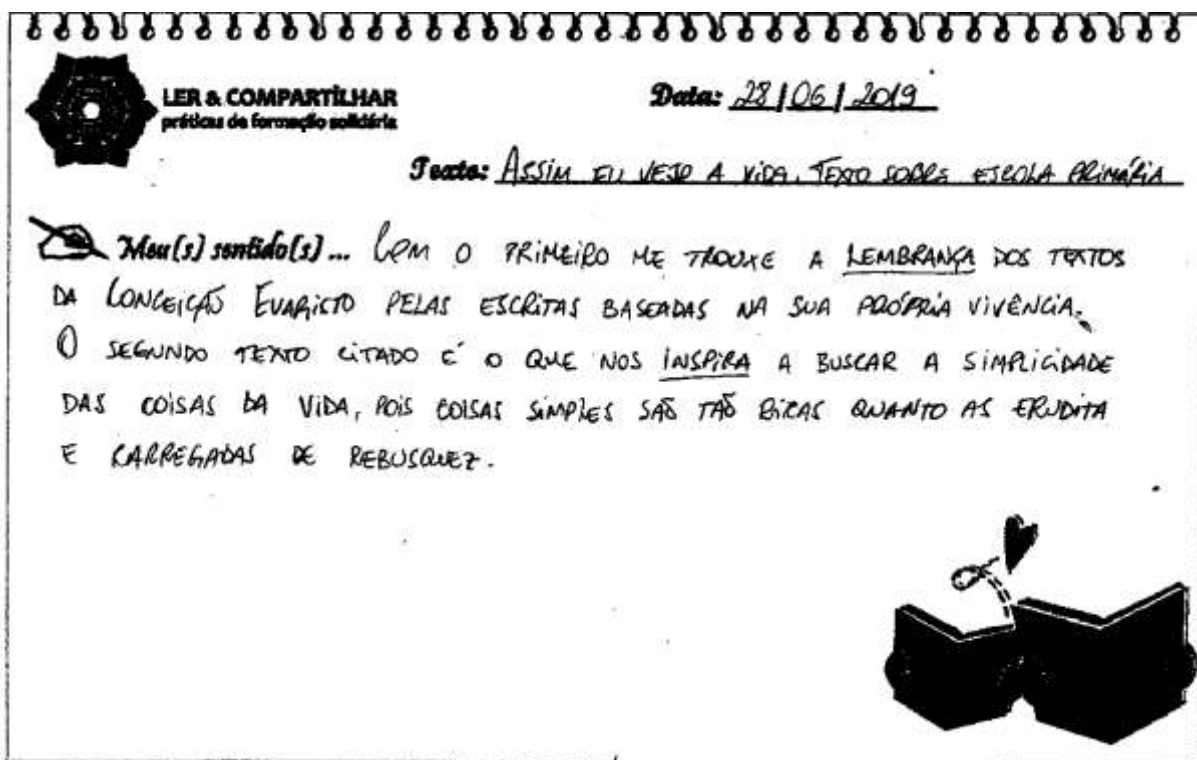 LER & COMPARTILHAR
práticas de formação solidária
Data: 28/06/2019
Texto: ASSIM EU VEJO A VIDA, TEXTO SOBRE ESCOLA PRIMÁRIA
Meu(s) sentido(s)... COM O PRIMEIRO ME TROUXE A LEMBRANÇA DOS TEXTOS
DA CONCEIÇÃO EVARISTO PELAS ESCRITAS BASEADAS NA SUA PRÓPRIA VIVÊNCIA.
O SEGUNDO TEXTO CITADO É O QUE NOS INSPIRA A BUSCAR A SIMPLICIDADE
DAS COISAS DA VIDA, POIS COISAS SIMPLES SÃO TÃO RICAS QUANTO AS ERUDITA
E CARREGADAS DE REBUSQUEZ.